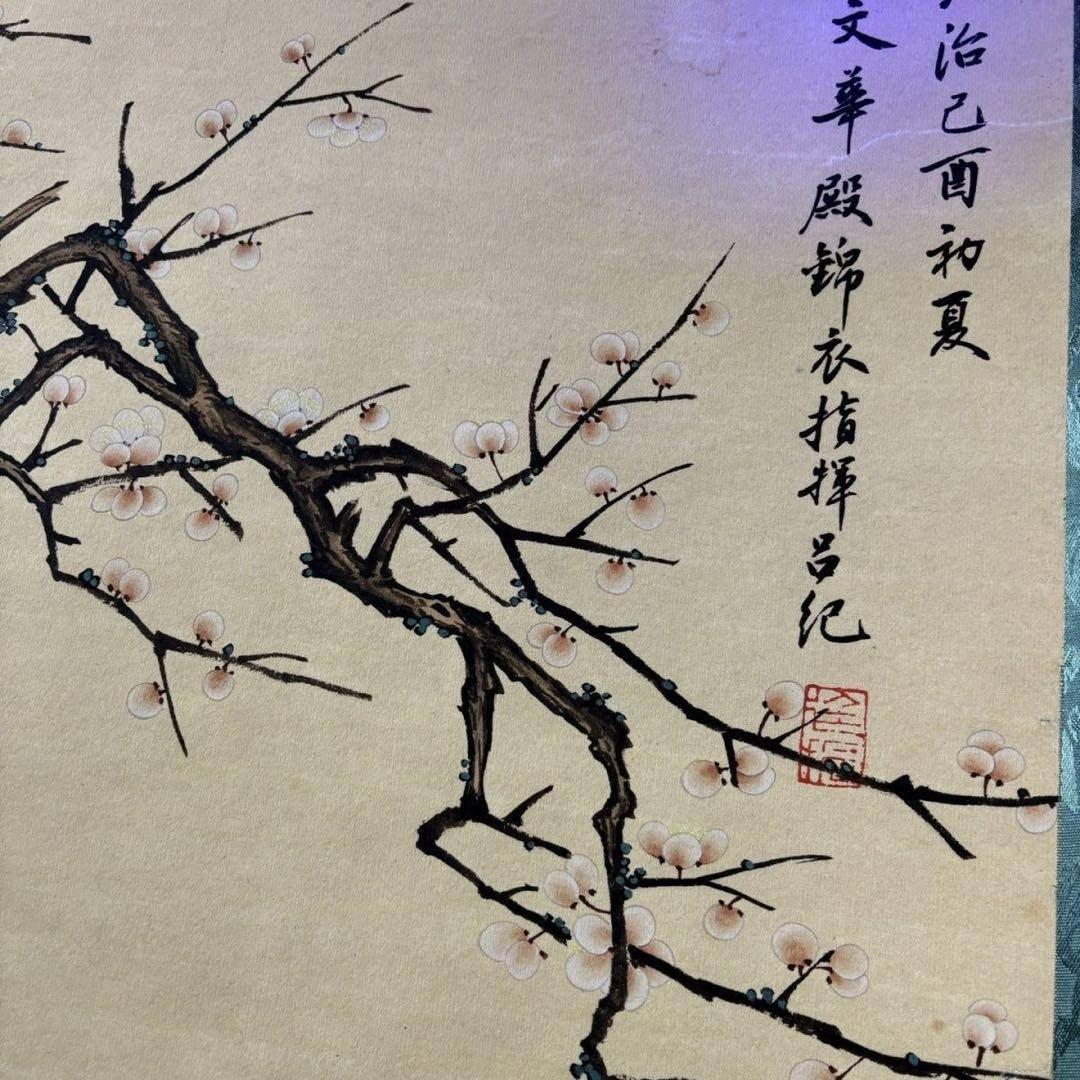 治己酉初夏
文華殿錦衣指揮呂紀